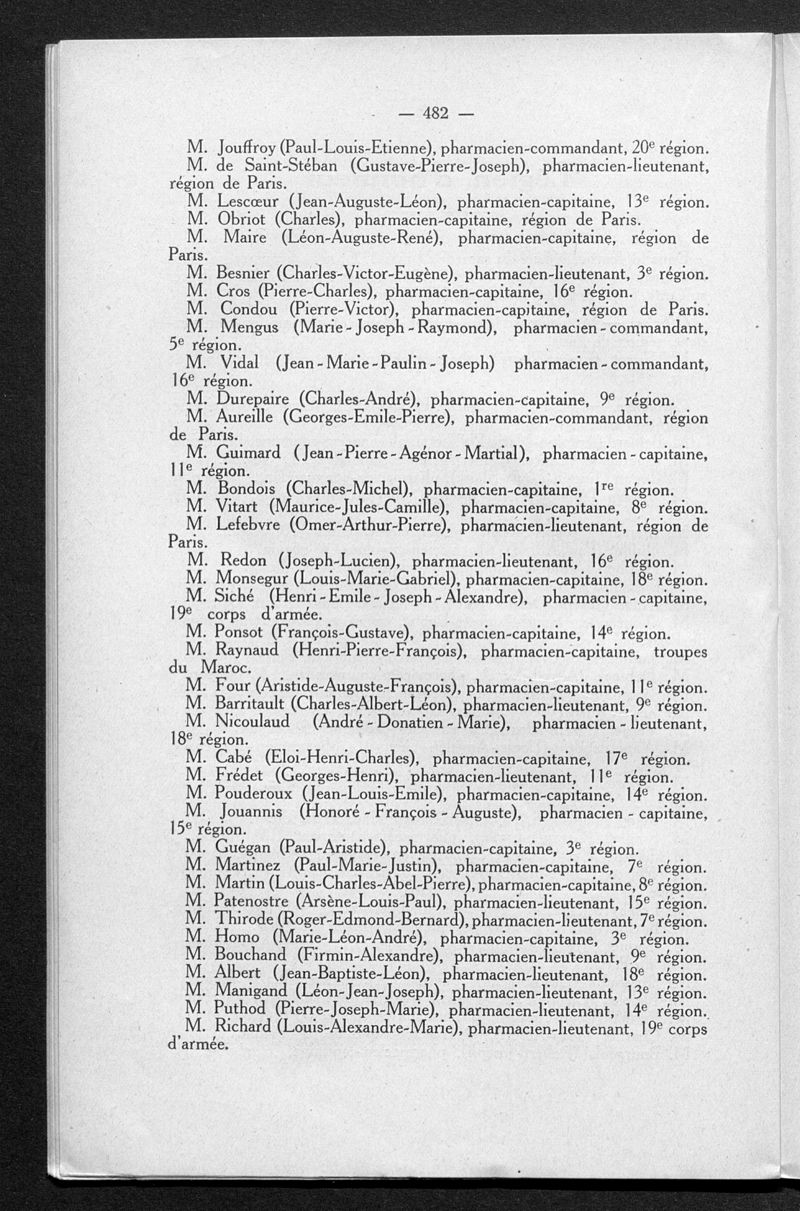 — 482 —
M. Jouffroy (Paul-Louis-Etienne), pharmacien-commandant, 20e région.
M. de Saint-Stéban (Gustave-Pierre-Joseph), pharmacien-lieutenant,
région de Paris.
M. Lescœur (Jean-Auguste-Léon), pharmacien-capitaine, 13e région.
M. Obriot (Charles), pharmacien-capitaine, région de Paris.
M. Maire (Léon-Auguste-René), pharmacien-capitaine, région de
Paris.
M. Besnier (Charles-Victor-Eugène), pharmacien-lieutenant, 3e région.
M. Cros (Pierre-Charles), pharmacien-capitaine, 16e région.
M. Condou (Pierre-Victor), pharmacien-capitaine, région de Paris.
M. Mengus (Marie-Joseph-Raymond), pharmacien-commandant,
5e région.
M. Vidal (Jean-Marie-Paulin-Joseph) pharmacien-commandant,
16e région.
M. Durepaire (Charles-André), pharmacien-capitaine, 9e région.
M. Aureille (Georges-Emile-Pierre), pharmacien-commandant, région
de Paris.
M. Guimard (Jean-Pierre-Agénor-Martial), pharmacien-capitaine,
11e région.
M. Bondois (Charles-Michel), pharmacien-capitaine, 1re région.
M. Vitart (Maurice-Jules-Camille), pharmacien-capitaine, 8e région.
M. Lefebvre (Omer-Arthur-Pierre), pharmacien-lieutenant, région de
Paris.
M. Redon (Joseph-Lucien), pharmacien-lieutenant, 16e région.
M. Monsegur (Louis-Marie-Gabriel), pharmacien-capitaine, 18e région.
M. Siché (Henri-Emile-Joseph-Alexandre), pharmacien-capitaine,
19e corps d'armée.
M. Ponsot (François-Gustave), pharmacien-capitaine, 14e région.
M. Raynaud (Henri-Pierre-François), pharmacien-capitaine, troupes
du Maroc.
M. Four (Aristide-Auguste-François), pharmacien-capitaine, 11e région.
M. Barritault (Charles-Albert-Léon), pharmacien-lieutenant, 9e région.
M. Nicoulaud (André-Donatien-Marie), pharmacien-lieutenant,
18e région.
M. Cabé (Eloi-Henri-Charles), pharmacien-capitaine, 17e région.
M. Frédet (Georges-Henri), pharmacien-lieutenant, 11e région.
M. Pouderoux (Jean-Louis-Emile), pharmacien-capitaine, 14e région.
M. Jouannis (Honoré-François-Auguste), pharmacien-capitaine,
15e région.
M. Guégan (Paul-Aristide), pharmacien-capitaine, 3e région.
M. Martinez (Paul-Marie-Justin), pharmacien-capitaine, 7e région.
M. Martin (Louis-Charles-Abel-Pierre), pharmacien-capitaine, 8e région.
M. Patenostre (Arsène-Louis-Paul), pharmacien-lieutenant, 15e région.
M. Thirode (Roger-Edmond-Bernard), pharmacien-lieutenant, 7e région.
M. Homo (Marie-Léon-André), pharmacien-capitaine, 3e région.
M. Bouchand (Firmin-Alexandre), pharmacien-lieutenant, 9e région.
M. Albert (Jean-Baptiste-Léon), pharmacien-lieutenant, 18e région.
M. Manigand (Léon-Jean-Joseph), pharmacien-lieutenant, 13e région.
M. Puthod (Pierre-Joseph-Marie), pharmacien-lieutenant, 14e région.
M. Richard (Louis-Alexandre-Marie), pharmacien-lieutenant, 19e corps
d'armée.